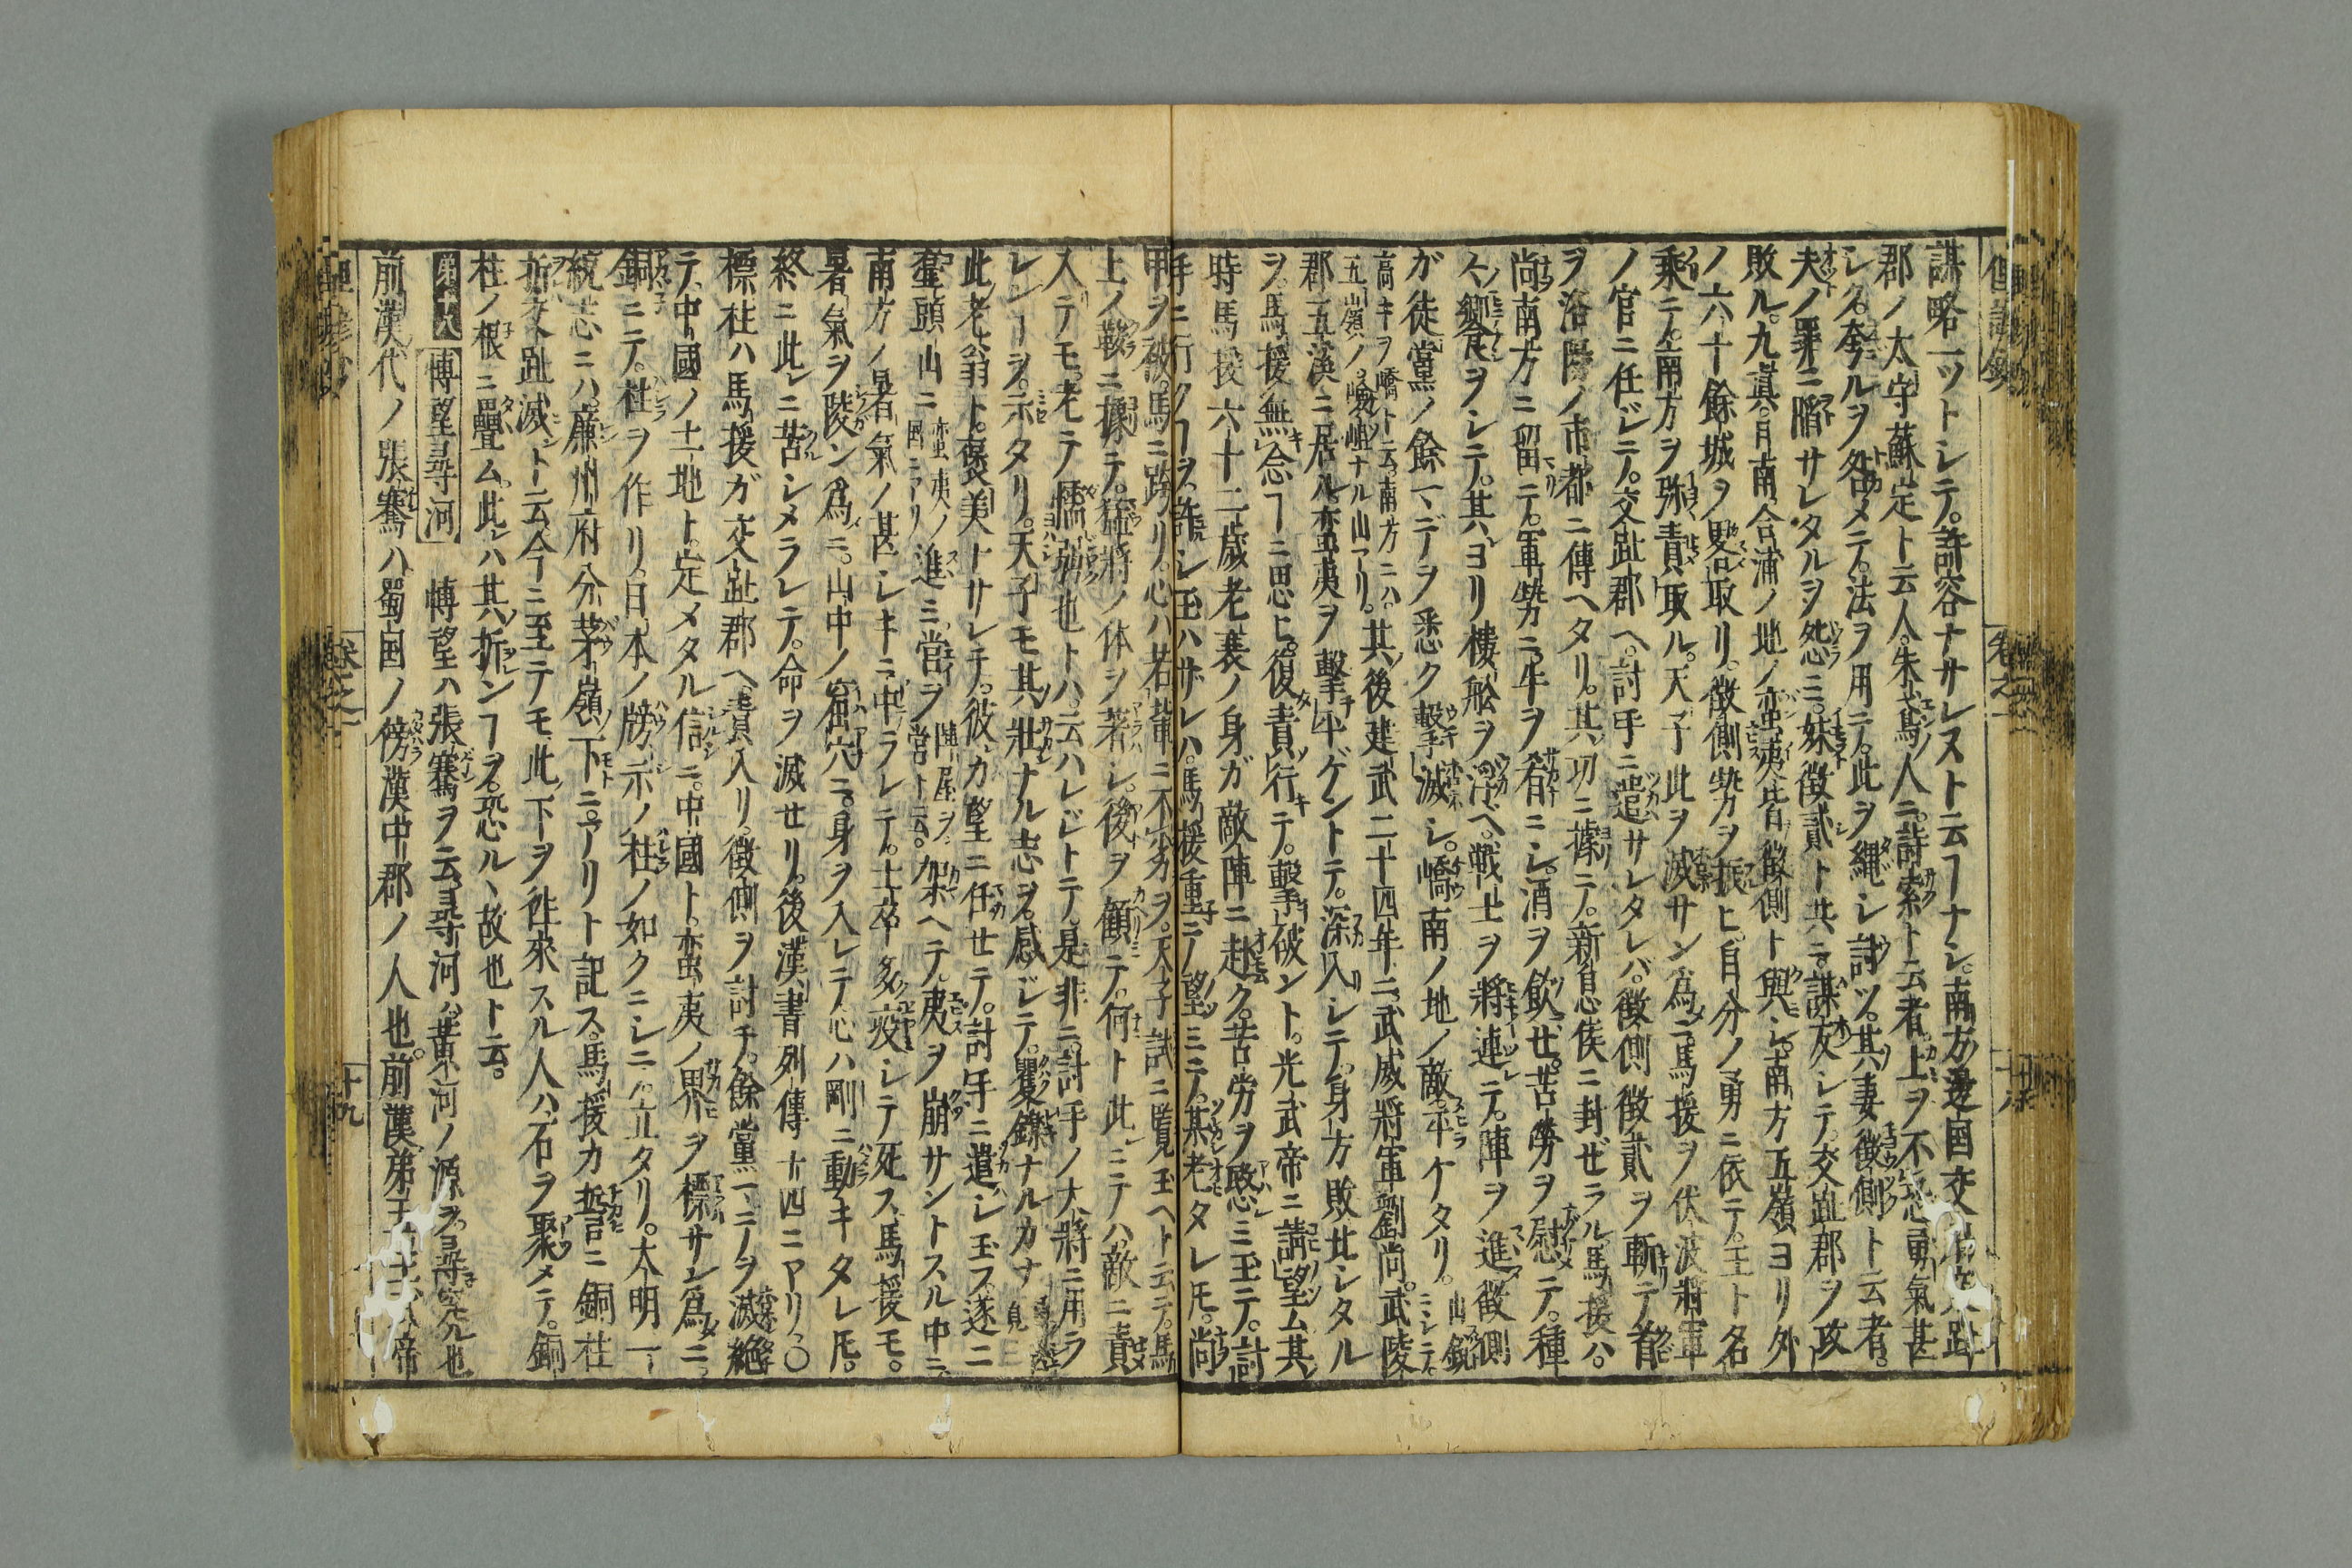 謀略一ツトシテ。許容ナサレスト云ヿナシ。南方邊国交
郡ノ太守蘇定ト云人。朱鳶人ニ。詩索ト云者。上ヲ不
シク。奎ルヲ咎メニテ。法ヲ用テ。此ヲ縄シ討ツ。其妻徴側ト云者。
夫ノ罪ニ陷サレタルヲ怨ミ。妹徴貳ト共ニ。謀友シテ。交趾郡ヲ攻
敗ル。九真。日南。合浦ノ地ノ蛮夷皆徴側ト與シ。南方五嶺ヨリ外
ノ六十餘城ヲ畧取リ。徴側勢ヲ振ヒ。自分ノ勇ニ依テ。王ト名
乘ニテ。南方ヲ弥責取ル。天子此ヲ滅サン為ニ。馬援ヲ伏波將軍
ノ官ニ任ジニテ。交趾郡ヘ。討手ニ遣サレタレバ。徴側徴貳ヲ斬テ。首
ヲ洛陽ノ市都ニ傳ヘタリ。其功ニ據ニテ。新息侯ニ封ゼラル。馬援ハ。
尚南方ニ留テ。軍勢ニ。牛ヲ肴ニシ。酒ヲ飲セ。苦勞ヲ慰テ。種
々饗食ヲシニテ。其ヨリ樓舩ヲ浮ベ。戦士ヲ將連テ。陣ヲ進。徴側
ガ徒黨ノ餘一、デヲ悉ク撃滅シ。嶠南ノ地ノ敵。平ケタリ。
高キヲ嶠ト云。南方ニハ。
五嶺ノ嶮岨ナル山アリ。其後建武二十四年ニ。武威將軍劉尚。武陵
郡五溪ニ居ル。蛮夷ヲ撃平ゲントテ。深入シテ。身方敗北シタル
ヲ。馬援無念ヿニ思ヒ。復責行テ。撃破ント。光武帝ニ請望ム。其
時馬援六十二歳老衰ノ身ガ敵陣ニ赴ク。苦労ヲ愍ミ玉テ。討
手ニ行クヿヲ。許シ玉ハザレハ。馬援重テノ望ミニテ。某老タレ𪜈。尚
甲ヲ被。馬ニ跨リ。心ハ若輩ニ不劣ヲ。天子試ニ覧玉ヘト云テ。馬
上ノ鞍ニ據テ。猛將ノ体ヲ著シ。後ヲ顧テ。何ト此ニテハ。敵ニ責
入テモ。老テ懦弱也トハ。云ハレジトテ。是非ニ。討手ノ大將ニ用ラ
レンヿヲ。示タリ。天子モ其壯ナル志ヲ。感ジテ。矍鑠ナルカナ
此老翁ト。褒美トサレテ。彼カ望ニ任セテ。討手ニ遣シ玉フ。遂ニ
壷頭山ニ 進ミ。営ヲ 架ヘテ。夷ヲ崩サントスル中ニ。
南方ノ暑氣ノ甚シキニ。中ラレテ。士卒多疫シテ死ス。馬援モ。
暑氣ヲ陵ン為ニ。山中ノ窟穴ニ。身ヲ入レテ。心ハ剛ニ動キタレ𪜈。
終ニ此ニ苦シメラレテ。命ヲ滅セリ。後漢書列傳十四ニアリ。〇
標柱ハ馬援ガ交趾郡ヘ責入リ。徴側ヲ討チ。餘黨一、ニテヲ滅絶
テ。中國ノ土地ト。定メタル信ニ。中國ト。蛮夷ノ界ヲ。標サン為ニ。
銅ニテ。柱ヲ作リ。日本ノ牓示ノ柱ノ如クニシニハ。立タリ。大明一
統志ニハ。廉州府分茅嶺ノ下ニアリト記ス。馬援カ誓ニ銅柱
折交趾滅ト云。今ニ至テモ。此下ヲ徃來スル人ハ。石ヲ聚メテ。銅
柱ノ根ニ疊ム。此ハ其折ンヿヲ。恐ル、故也ト云。
第十八 博望尋河 博望ハ張騫ヲ云。尋河ハ。黄河ノ源ヲ。尋究ル也
前漢代ノ張騫ハ。蜀国ノ傍漢中郡ノ人也。前漢第五 帝
十九